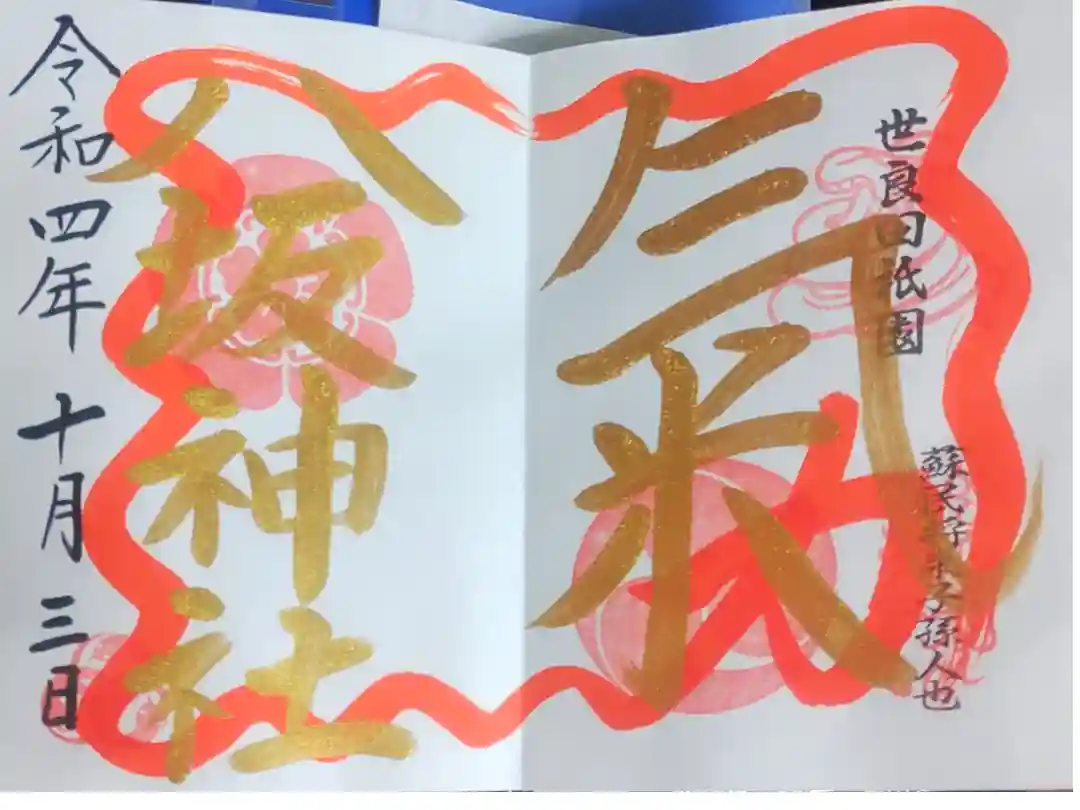 世良田祇園
蘇民将来子孫人也
氣
八坂神社
令和四年十月三日